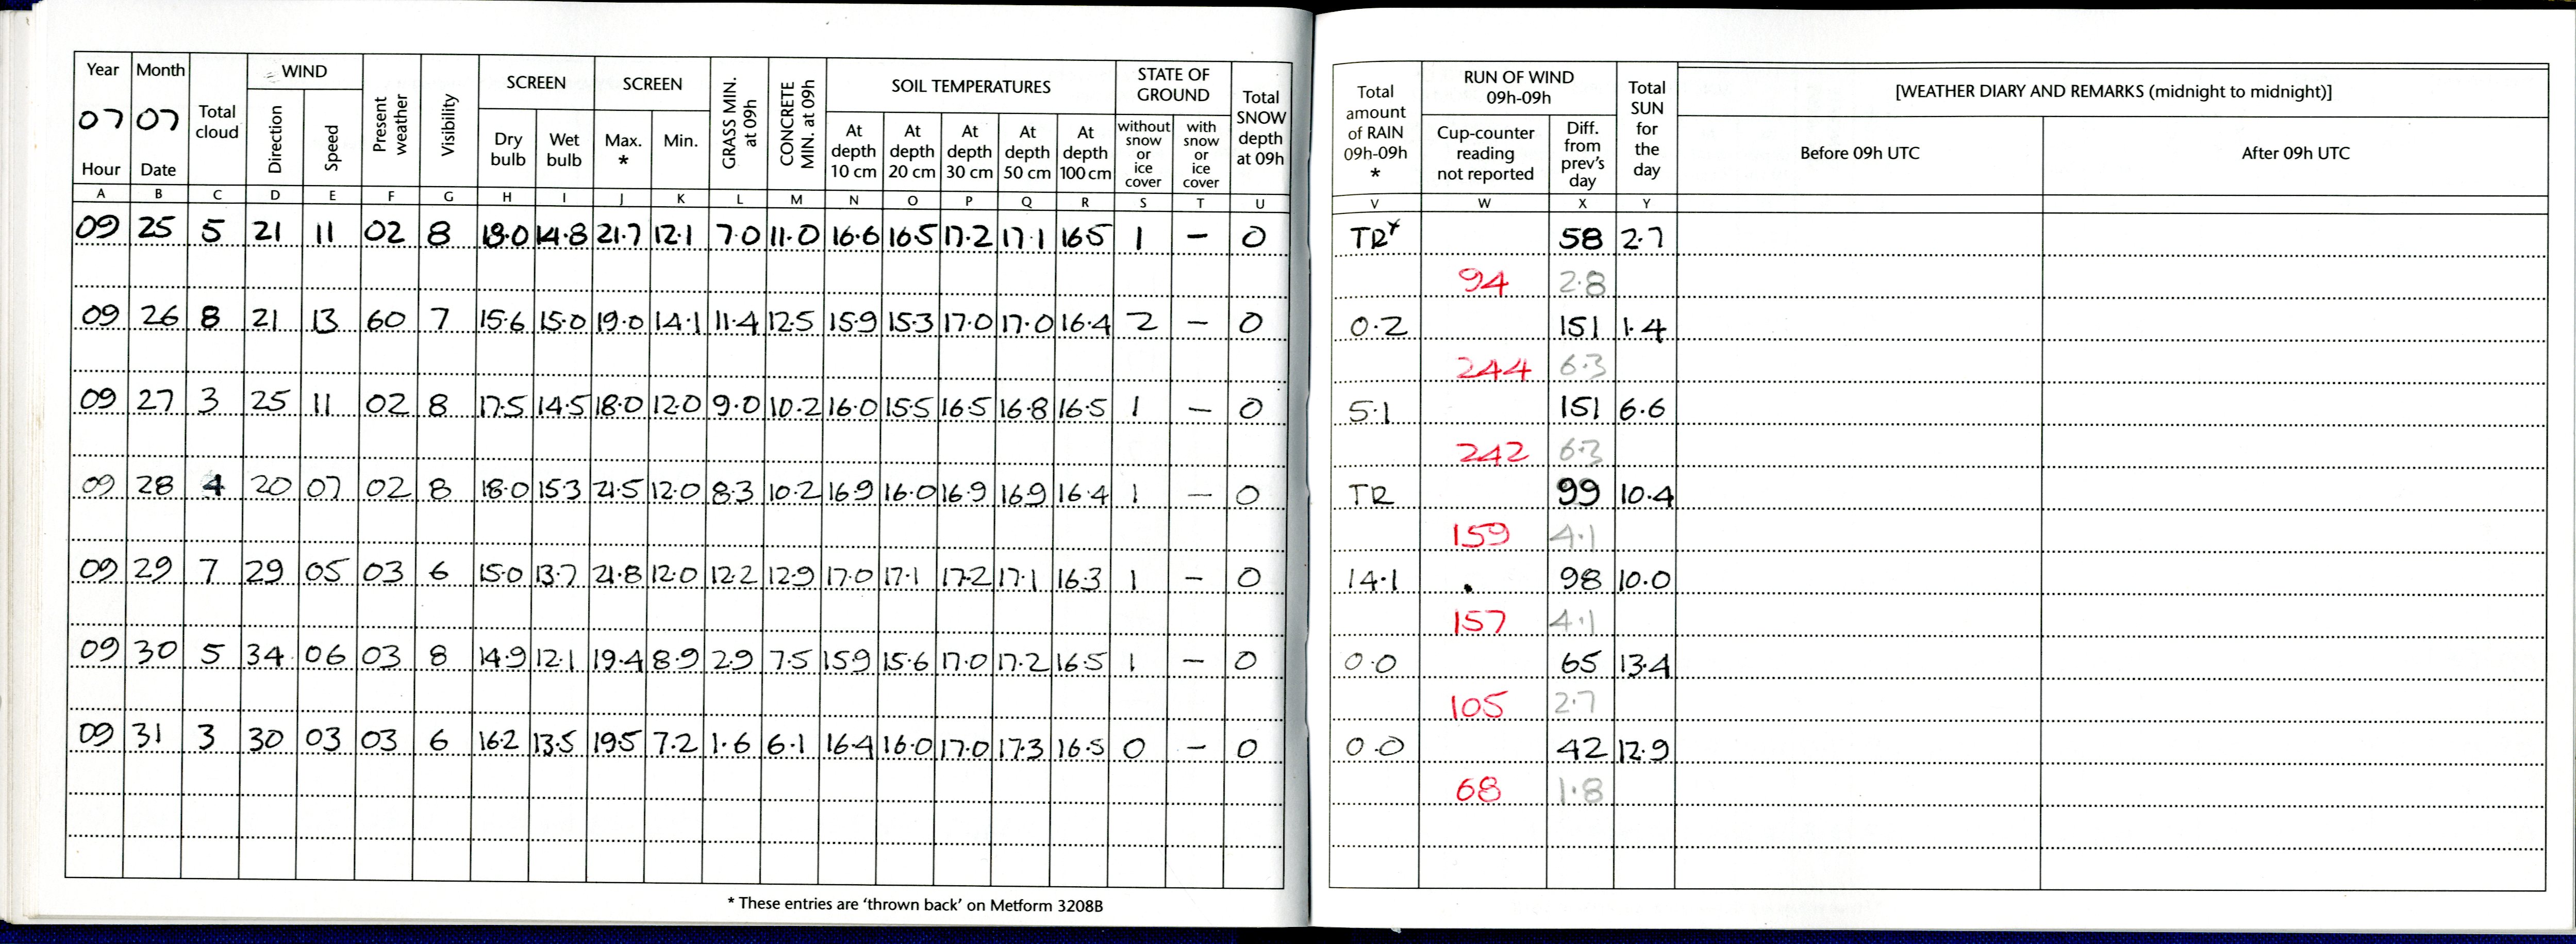 Year Month Total cloud WIND Present weather Visibility SCREEN SCREEN GRASS MIN. at 09h CONCRETE MIN. at 09h SOIL TEMPERATURES STATE OF GROUND Total SNOW depth at 09h Total amount of RAIN 09h-09h * RUN OF WIND 09h-09h Total SUN for the day [WEATHER DIARY AND REMARKS (midnight to midnight)]
07 07
Hour Date Direction Speed Dry bulb Wet bulb Max. * Min. At depth 10 cm At depth 20 cm At depth 30 cm At depth 50 cm At depth 100 cm without snow or ice cover with snow or ice cover Cup-counter reading not reported Diff. from prev's day Before 09h UTC After 09h UTC
A B C D E F G H I J K L M N O P Q R S T U V W X Y
09 25 5 21 11 02 8 18.0 14.8 21.7 12.1 7.0 11.0 16.6 16.5 17.2 17.1 16.5 1 – 0 TR* 58 2.7
94 2.8
09 26 8 21 13 60 7 15.6 15.0 19.0 14.1 11.4 12.5 15.9 15.3 17.0 17.0 16.4 2 – 0 0.2 151 1.4
244 6.3
09 27 3 25 11 02 8 17.5 14.5 18.0 12.0 9.0 10.2 16.0 15.5 16.5 16.8 16.5 1 – 0 5.1 151 6.6
242 6.3
09 28 4 20 07 02 8 18.0 15.3 21.5 12.0 8.3 10.2 16.9 16.0 16.9 16.9 16.4 1 – 0 TR 99 10.4
159 4.1
09 29 7 29 05 03 6 15.0 13.7 21.8 12.0 12.2 12.9 17.0 17.1 17.2 17.1 16.3 1 – 0 14.1 98 10.0
157 4.1
09 30 5 34 06 03 8 14.9 12.1 19.4 8.9 2.9 7.5 15.9 15.6 17.0 17.2 16.5 1 – 0 0.0 65 13.4
105 2.7
09 31 3 30 03 03 6 16.2 13.5 19.5 7.2 1.6 6.1 16.4 16.0 17.0 17.3 16.5 0 – 0 0.0 42 12.9
68 1.8
* These entries are 'thrown back' on Metform 3208B